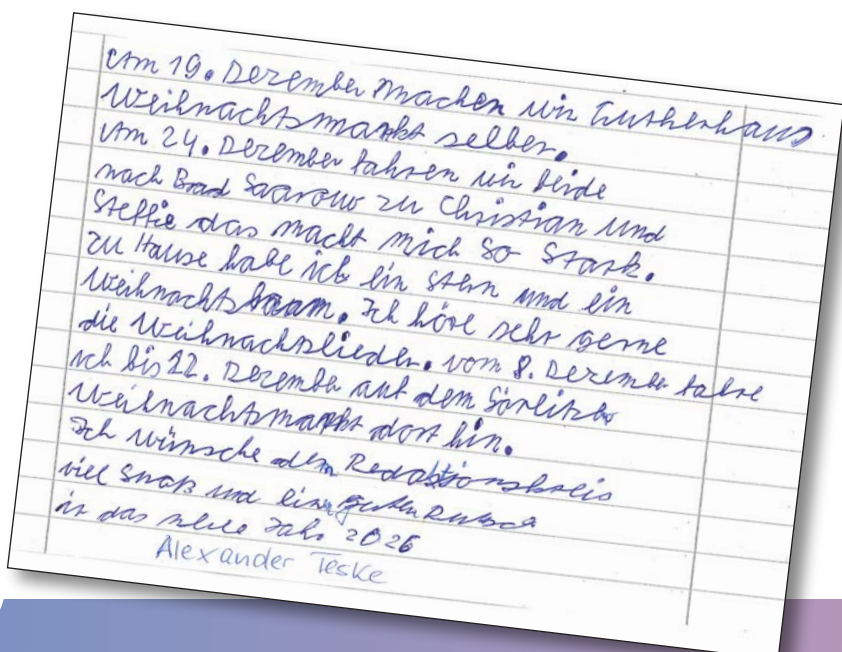 Am 19. Dezember machen wir Lutherhaus
Weihnachtsmarkt selber.
Am 24. Dezember fahren wir beide
nach Brad Saarouw zu Christian und
Steffie das macht mich so Stark.
zu Hause habe ich ein Stern und ein
Weihnachtsbaum. Ich höre sehr gerne
die Weihnachtslieder. vom 8. Dezember fahre
ich bis 12. Dezember auf dem Görlitzer
Weihnachtsmarkt dort hin.
Ich wünsche dem Redaktionskreis
viel Spaß und einen guten Rutsch
in das neue Jahr 2026
Alexander Teske